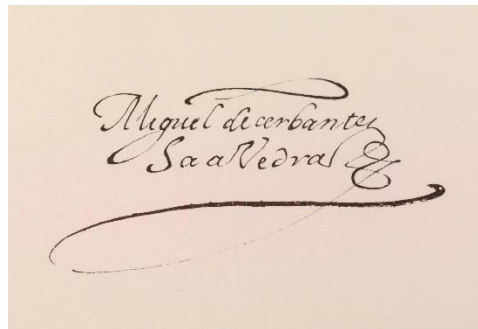 Miguel de cerbantes
Saavedra